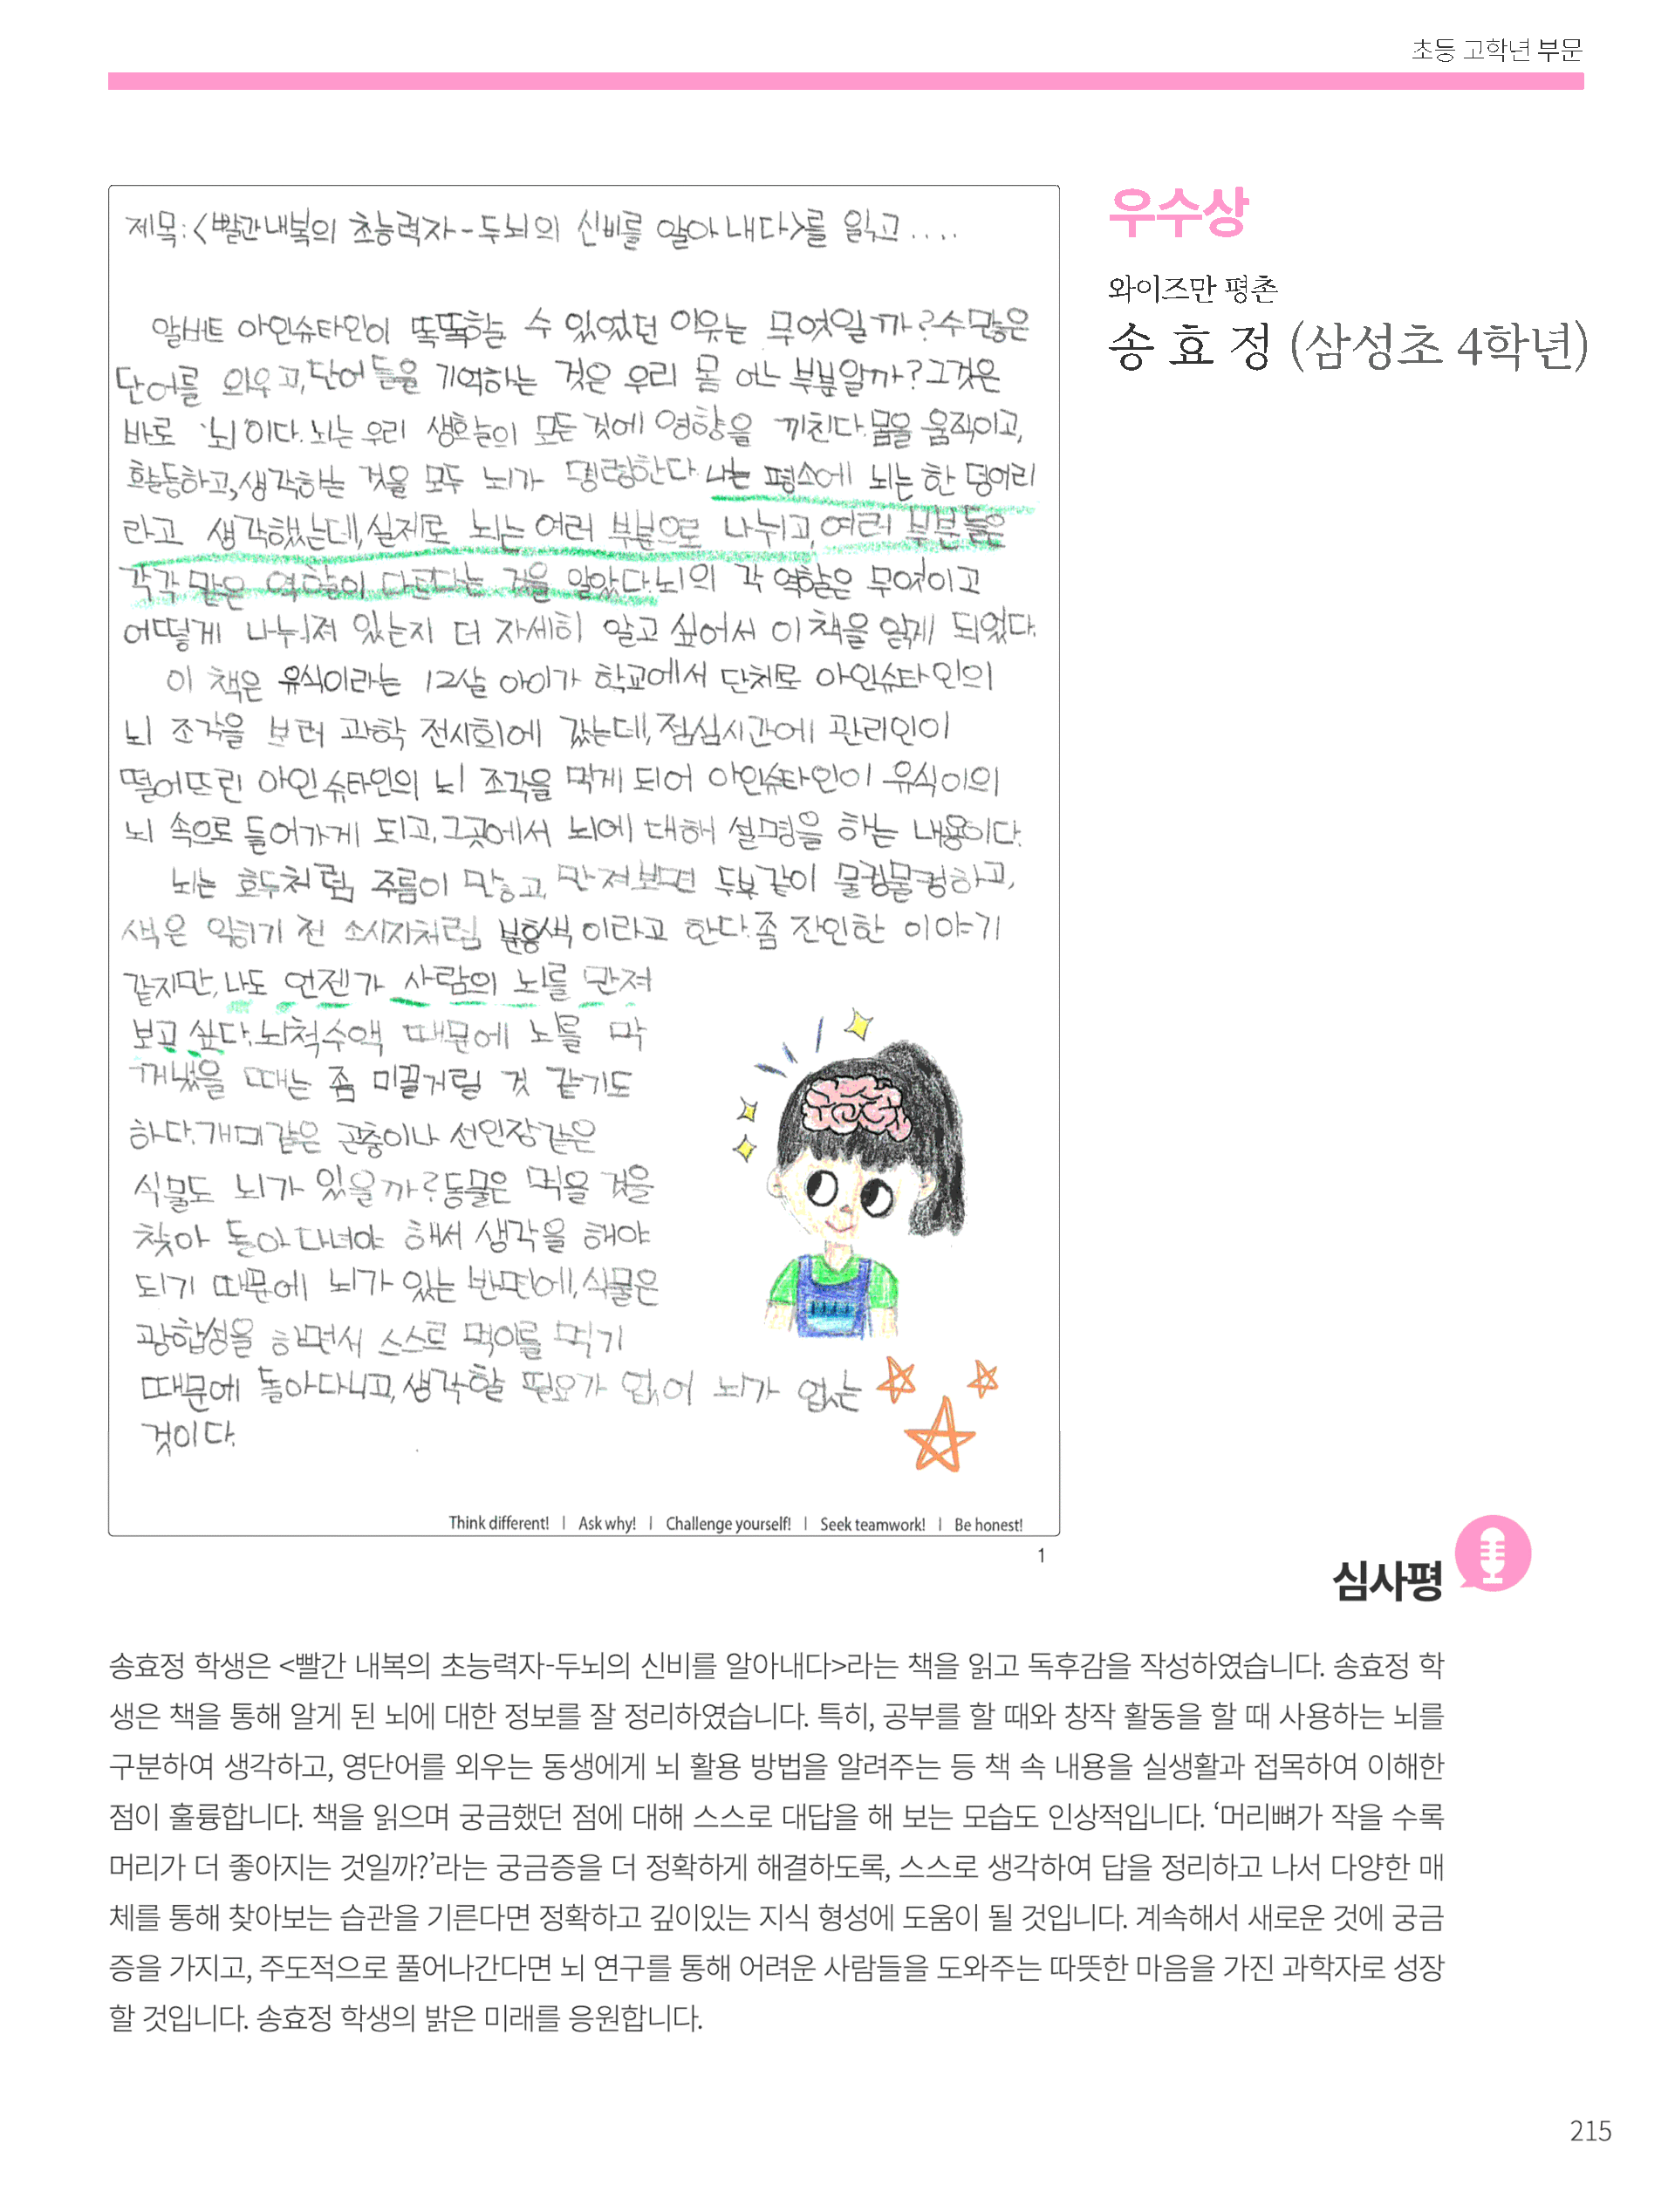 초등 고학년 부문
제목:<빨간내복의 초능력자-두뇌의 신비를 알아내다>를 읽고....
알버트 아인슈타인이 똑똑할 수 있었던 이유는 무엇일까?수많은
단어를 외우고,단어들을 기억하는 것은 우리 몸 어느 부분일까?그것은
바로 '뇌'이다.뇌는 우리 생활의 모든 것에 영향을 끼친다.몸을 움직이고,
활동하고,생각하는 것을 모두 뇌가 명령한다.나는 평소에 뇌는 한 덩어리
라고 생각했는데,실제로 뇌는 여러 부분으로 나뉘고,여러 부분들은
각각 맡은 역할이 다르다는 것을 알았다.뇌의 각 역할은 무엇이고
어떻게 나누어져 있는지 더 자세히 알고 싶어서 이 책을 읽게 되었다.
이 책은 유식이라는 12살 아이가 학교에서 단체로 아인슈타인의
뇌 조각을 보러 과학 전시회에 갔는데,점심시간에 관리인이
떨어뜨린 아인슈타인의 뇌 조각을 먹게 되어 아인슈타인이 유식이의
뇌 속으로 들어가게 되고,그곳에서 뇌에 대해 설명을 하는 내용이다.
뇌는 호두처럼 주름이 많고,만져보면 두부같이 물컹물컹하고,
색은 익히기 전 소시지처럼 분홍색이라고 한다.좀 잔인한 이야기
같지만,나도 언젠가 사람의 뇌를 만져
보고 싶다.뇌척수액 때문에 뇌를 막
꺼냈을 때는 좀 미끌거릴 것 같기도
하다.개미같은 곤충이나 선인장같은
식물도 뇌가 있을까?동물은 먹을 것을
찾아 돌아다녀야 해서 생각을 해야
되기 때문에 뇌가 있는 반면에,식물은
광합성을 하면서 스스로 먹이를 먹기
때문에 돌아다니고,생각할 필요가 없어 뇌가 없는
것이다.
Think different! | Ask why! | Challenge yourself! | Seek teamwork! | Be honest!
1
우수상
와이즈만 평촌
송 효 정 (삼성초 4학년)
심사평
송효정 학생은 <빨간 내복의 초능력자-두뇌의 신비를 알아내다>라는 책을 읽고 독후감을 작성하였습니다. 송효정 학
생은 책을 통해 알게 된 뇌에 대한 정보를 잘 정리하였습니다. 특히, 공부를 할 때와 창작 활동을 할 때 사용하는 뇌를
구분하여 생각하고, 영단어를 외우는 동생에게 뇌 활용 방법을 알려주는 등 책 속 내용을 실생활과 접목하여 이해한
점이 훌륭합니다. 책을 읽으며 궁금했던 점에 대해 스스로 대답을 해 보는 모습도 인상적입니다. ‘머리뼈가 작을 수록
머리가 더 좋아지는 것일까?’라는 궁금증을 더 정확하게 해결하도록, 스스로 생각하여 답을 정리하고 나서 다양한 매
체를 통해 찾아보는 습관을 기른다면 정확하고 깊이있는 지식 형성에 도움이 될 것입니다. 계속해서 새로운 것에 궁금
증을 가지고, 주도적으로 풀어나간다면 뇌 연구를 통해 어려운 사람들을 도와주는 따뜻한 마음을 가진 과학자로 성장
할 것입니다. 송효정 학생의 밝은 미래를 응원합니다.
215